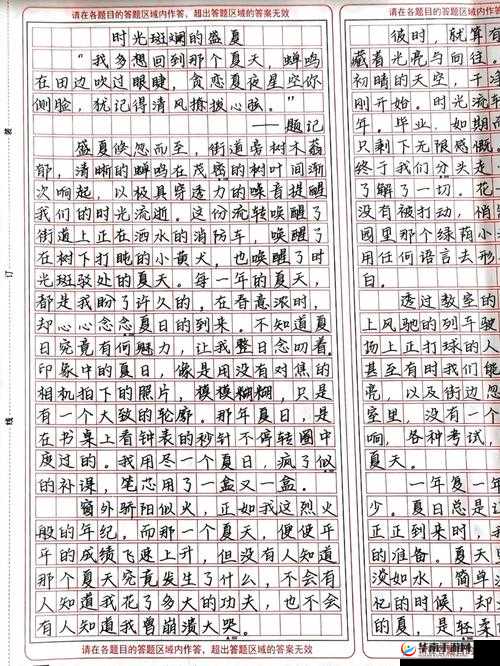 请在各题目的答题区域内作答,超出答题区域的答案无效
时光斑斓的盛夏
“我多想回到那个夏天,蝉鸣
在田边吹过眼睫,贪恋夏夜星空你
侧脸,犹记得清风撩拨心弦。”
——题记
盛夏倏忽而至,街道旁树木蓊
郁,清晰的蝉鸣在茂密的树叶间渐
次响起,以极具穿透力的嗓音提醒
我们的时光流逝。这份流转唤醒了
街道上正在洒水的消防车,唤醒了
在树下打盹的小黄犬,也唤醒了时
光斑驳处的夏天。每一年的夏天,
都是我盼了许久的,在春意浓时,
却心心念念夏日的到来。不知道夏
日究竟有何魅力,让我整日念叨着。
印象中的夏日,像是用没有对焦的
相机拍下的照片,模模糊糊,只是
有一个大致的轮廓。那年夏日,是
在书桌上看钟表的秒针不停转圈中
度过的。我用尽一个夏日,疯了似
的补课,笔芯用了一盒又一盒。
窗外骄阳似火,正如我这烈火
般的年纪。而那一个夏天,便使平
平的成绩飞速上升,但没有人知道
那个夏天究竟发生了什么,不会有
人知道我花了多大的功夫,也不会
有人知道我曾崩溃大哭。
请在各题目的答题区域内作答,超出答题区域的答案无效
装
订
线
请在各题目的答题区域内
彼时,就算有
藏着光亮与向往。
初晴的天空,干净
刚开始。时光流车
年。毕业,如期而
只剩下无限感慨。
终于我们分头走
了解了一切。花
没有被打动,悄
园里那个绿荫小
用任何语言去形
白。
透过教室的
上风驰的列车驶
扬上正打球的人
甚至有时我们能
亮,以及街边忽
室里,没有一个
响,各种考试,
夏天。
一年复一年
少。夏日总是让
正正到来时,我
的准备。夏天
淡如水,简单
忆的时候,却
的夏,是轻柔
请在各题目的答题区域
华南手游网